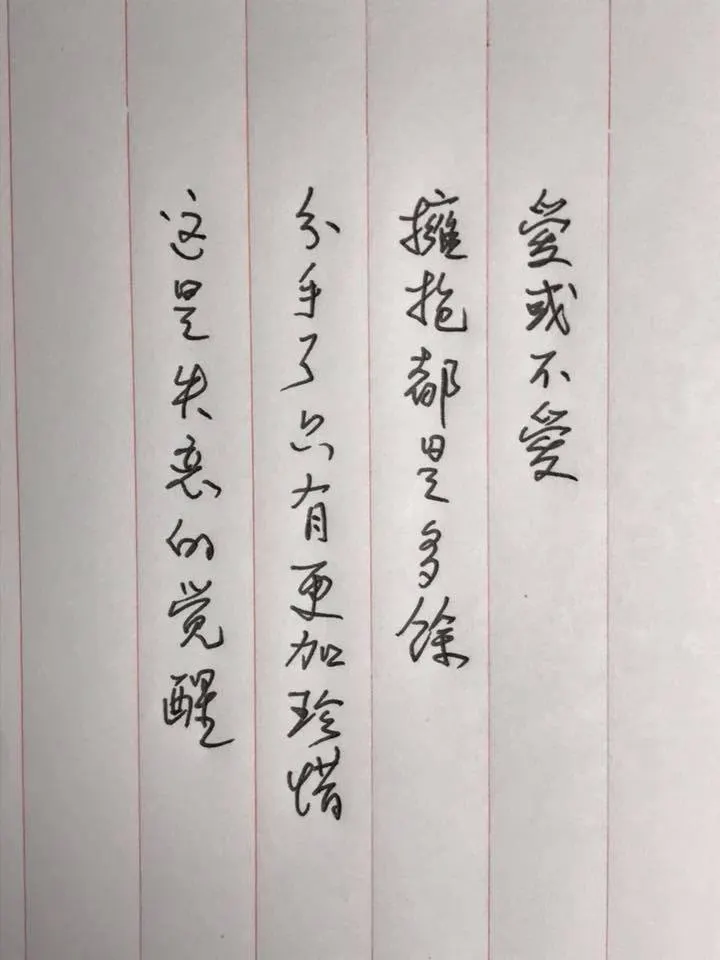 愛或不愛
擁抱都是多餘
分手了只有更加珍惜
这是失恋的觉醒